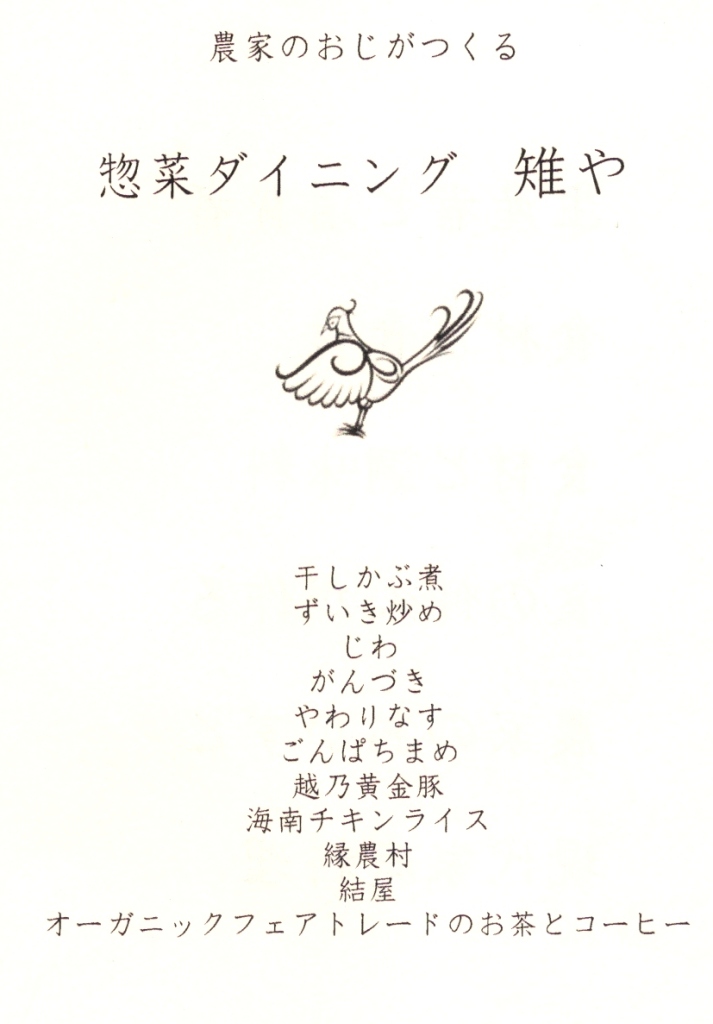 農家のおじがつくる
惣菜ダイニング 雉や
干しかぶ煮
ずいき炒め
じわ
がんづき
やわりなす
ごんぱちまめ
越乃黄金豚
海南チキンライス
縁農村
結屋
オーガニックフェアトレードのお茶とコーヒー